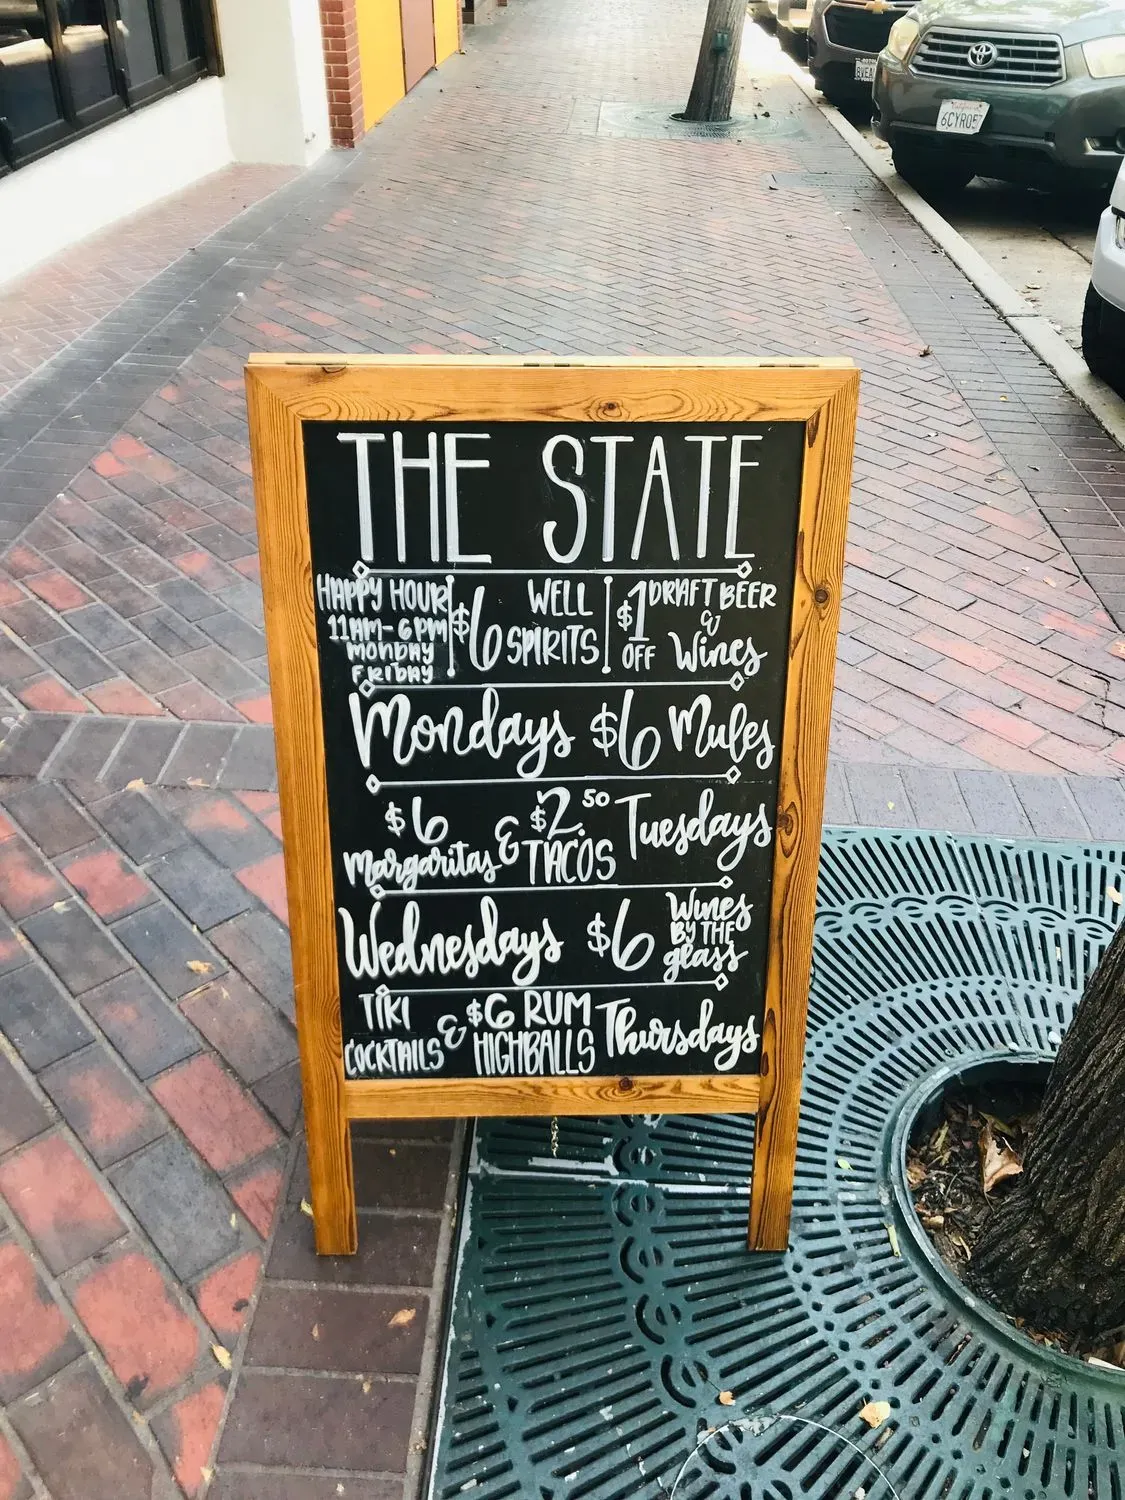 THE STATE
HAPPY HOUR
11AM-6PM
MONDAY
FRIDAY
$6 WELL
SPIRITS
$1 DRAFT BEER
&
OFF Wines
Mondays $6 Mules
$6
Margaritas
&
$2.50
TACOS
Tuesdays
Wednesdays $6
Wines
BY THE
glass
TIKI
COCKTAILS
&
$6 RUM
HIGHBALLS
Thursdays
6CYR057